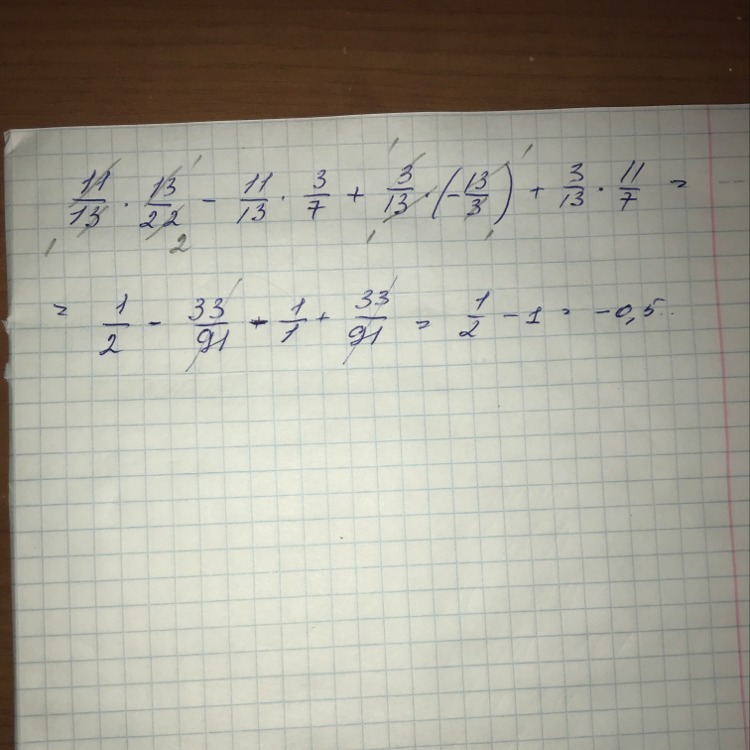 11/13 · 13/22 - 11/13 · 3/7 + 3/13 · (-13/3) + 3/13 · 11/7 =
= 1/2 - 33/91 - 1/1 + 33/91 = 1/2 - 1 = -0,5